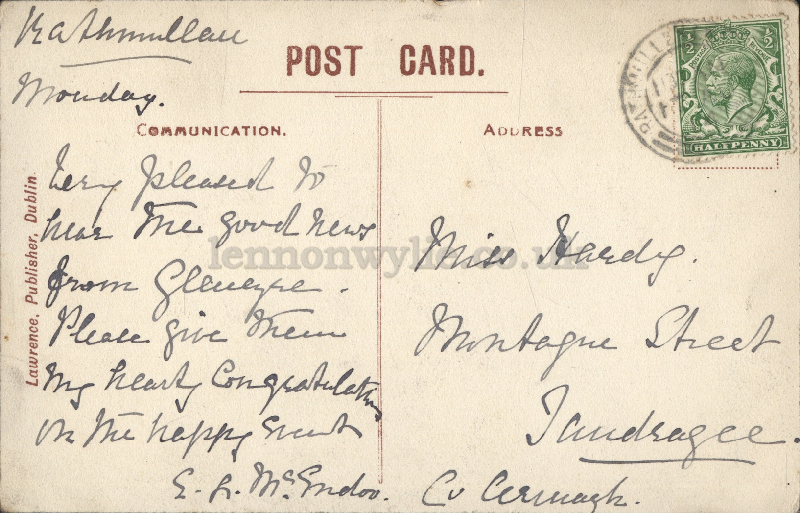 Rathmullan
POST CARD.
Monday.
COMMUNICATION.
ADDRESS
½ ½
POSTAGE REVENUE
HALFPENNY
RATHMULL
Lawrence, Publisher, Dublin
Very pleased to
hear the good news
from Gleneyre.
Please give them
my hearty Congratulations
on the happy Event
E. R. McEndoo.
lennonwylie.co.uk
Miss Hardy.
Montague Street
Tandragee.
Co Armagh.